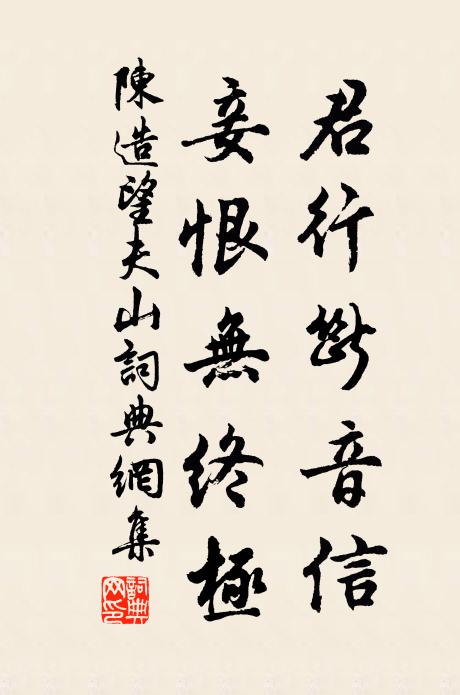 君行斷音信
妾恨無終極
陳造望夫山詞典網集
詞典網印